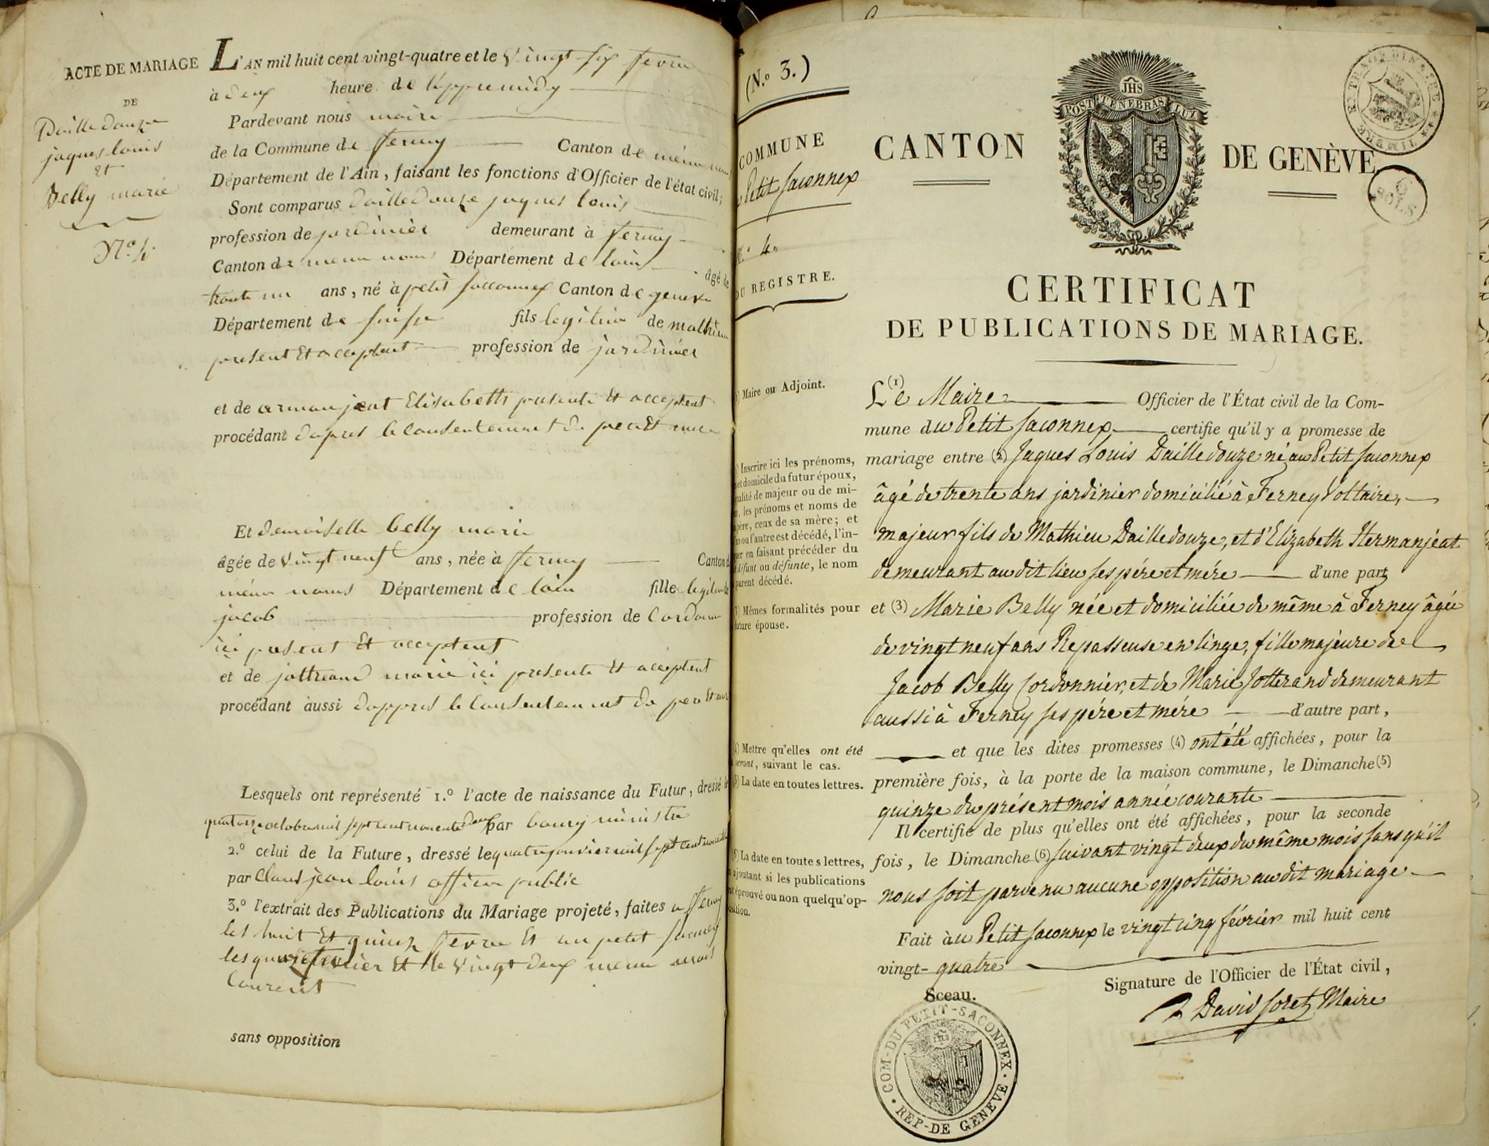 ACTE DE MARIAGE
DE
Dailledouze
jaques louis
et
Belly marie
N.o 4.
L'AN mil huit cent vingt-quatre et le Vingt six fevrier
à deux heure de l'apremidy
Pardevant nous maire
de la Commune de ferney Canton de même
Département de l'Ain, faisant les fonctions d'Officier de l'état civil;
Sont comparus dailledouze jaques louis
profession de jardinier demeurant à ferney
Canton de meme nom Département de lain âgé de
trente un ans, né à petit saconnex Canton de geneve
Département de suisse fils legitime de mathieu
present et acceptant profession de jardinier
et de ermanjeat Elisabeth presente et acceptent
procédant dapres le consentement de pere et mere
Et demoiselle belly marie
âgée de vingt neuf ans, née à ferney Canton
meme noms Département de lain fille legitime
jacob profession de Cordonnier
ici present et acceptent
et de jottrand marie ici presente et acceptent
procédant aussi dappres le consentement de pere et mere
Lesquels ont représenté 1.o l'acte de naissance du Futur, dressé le
quatorze octobre mil sept cent nonente deux par bourry ministre
2.o celui de la Future, dressé le quatre janvier mil sept cent nonante
par Claus jean louis officier public
3.o l'extrait des Publications du Mariage projeté, faites a ferney
les huit et quinze fevrier et au petit saconnex
les quinze fevrier et le vingt deux meme mois
Courent
sans opposition
(N.o 3.)
COMMUNE
Petit saconnex
N.o 4.
DU REGISTRE.
CANTON DE GENÈVE
JHS
POST TENEBRAS LUX
CERTIFICAT
DE PUBLICATIONS DE MARIAGE.
Maire ou Adjoint.
Le (1) Maire Officier de l'État civil de la Com-
mune du Petit Saconnex certifie qu'il y a promesse de
mariage entre (2) Jaques Louis Dailledouze né au Petit Saconnex
âgé de trente ans jardinier domicilié à Ferney Voltaire,
majeur fils de Mathieu Dailledouze, et d'Elizabeth Hermanjeat
demeurant au dit lieu ses père et mère d'une part
et (3) Marie Belly née et domiciliée de même à Ferney âgée
de vingt neuf ans Repasseuse en linge, fille majeure de
Jacob Belly Cordonnier, et de Marie Jotterand demeurant
aussi à Ferney ses père et mère d'autre part,
et que les dites promesses (4) ont été affichées, pour la
première fois, à la porte de la maison commune, le Dimanche (5)
quinze du présent mois année courante
Il certifie de plus qu'elles ont été affichées, pour la seconde
fois, le Dimanche (6) suivant vingt deux du même mois sans qu'il
nous soit parvenu aucune opposition au dit mariage
Fait au Petit Saconnex le vingt cinq février mil huit cent
vingt-quatre
Signature de l'Officier de l'État civil,
Sceau.
David Soret Maire
Inscrire ici les prénoms,
et domicile du futur époux,
qualité de majeur ou de mi-
les prénoms et noms de
père, ceux de sa mère; et
ou l'autre est décédé, l'in-
en faisant précéder du
défunt ou défunte, le nom
parent décédé.
Mêmes formalités pour
future épouse.
Mettre qu'elles ont été
seront, suivant le cas.
La date en toutes lettres.
La date en toutes lettres,
ajoutant si les publications
éprouvé ou non quelqu'op-
position.
COM-DU PETIT-SACONNEX
REP-DE GENÈVE
TIMBRE EXTRAORDINAIRE
6 SOLS